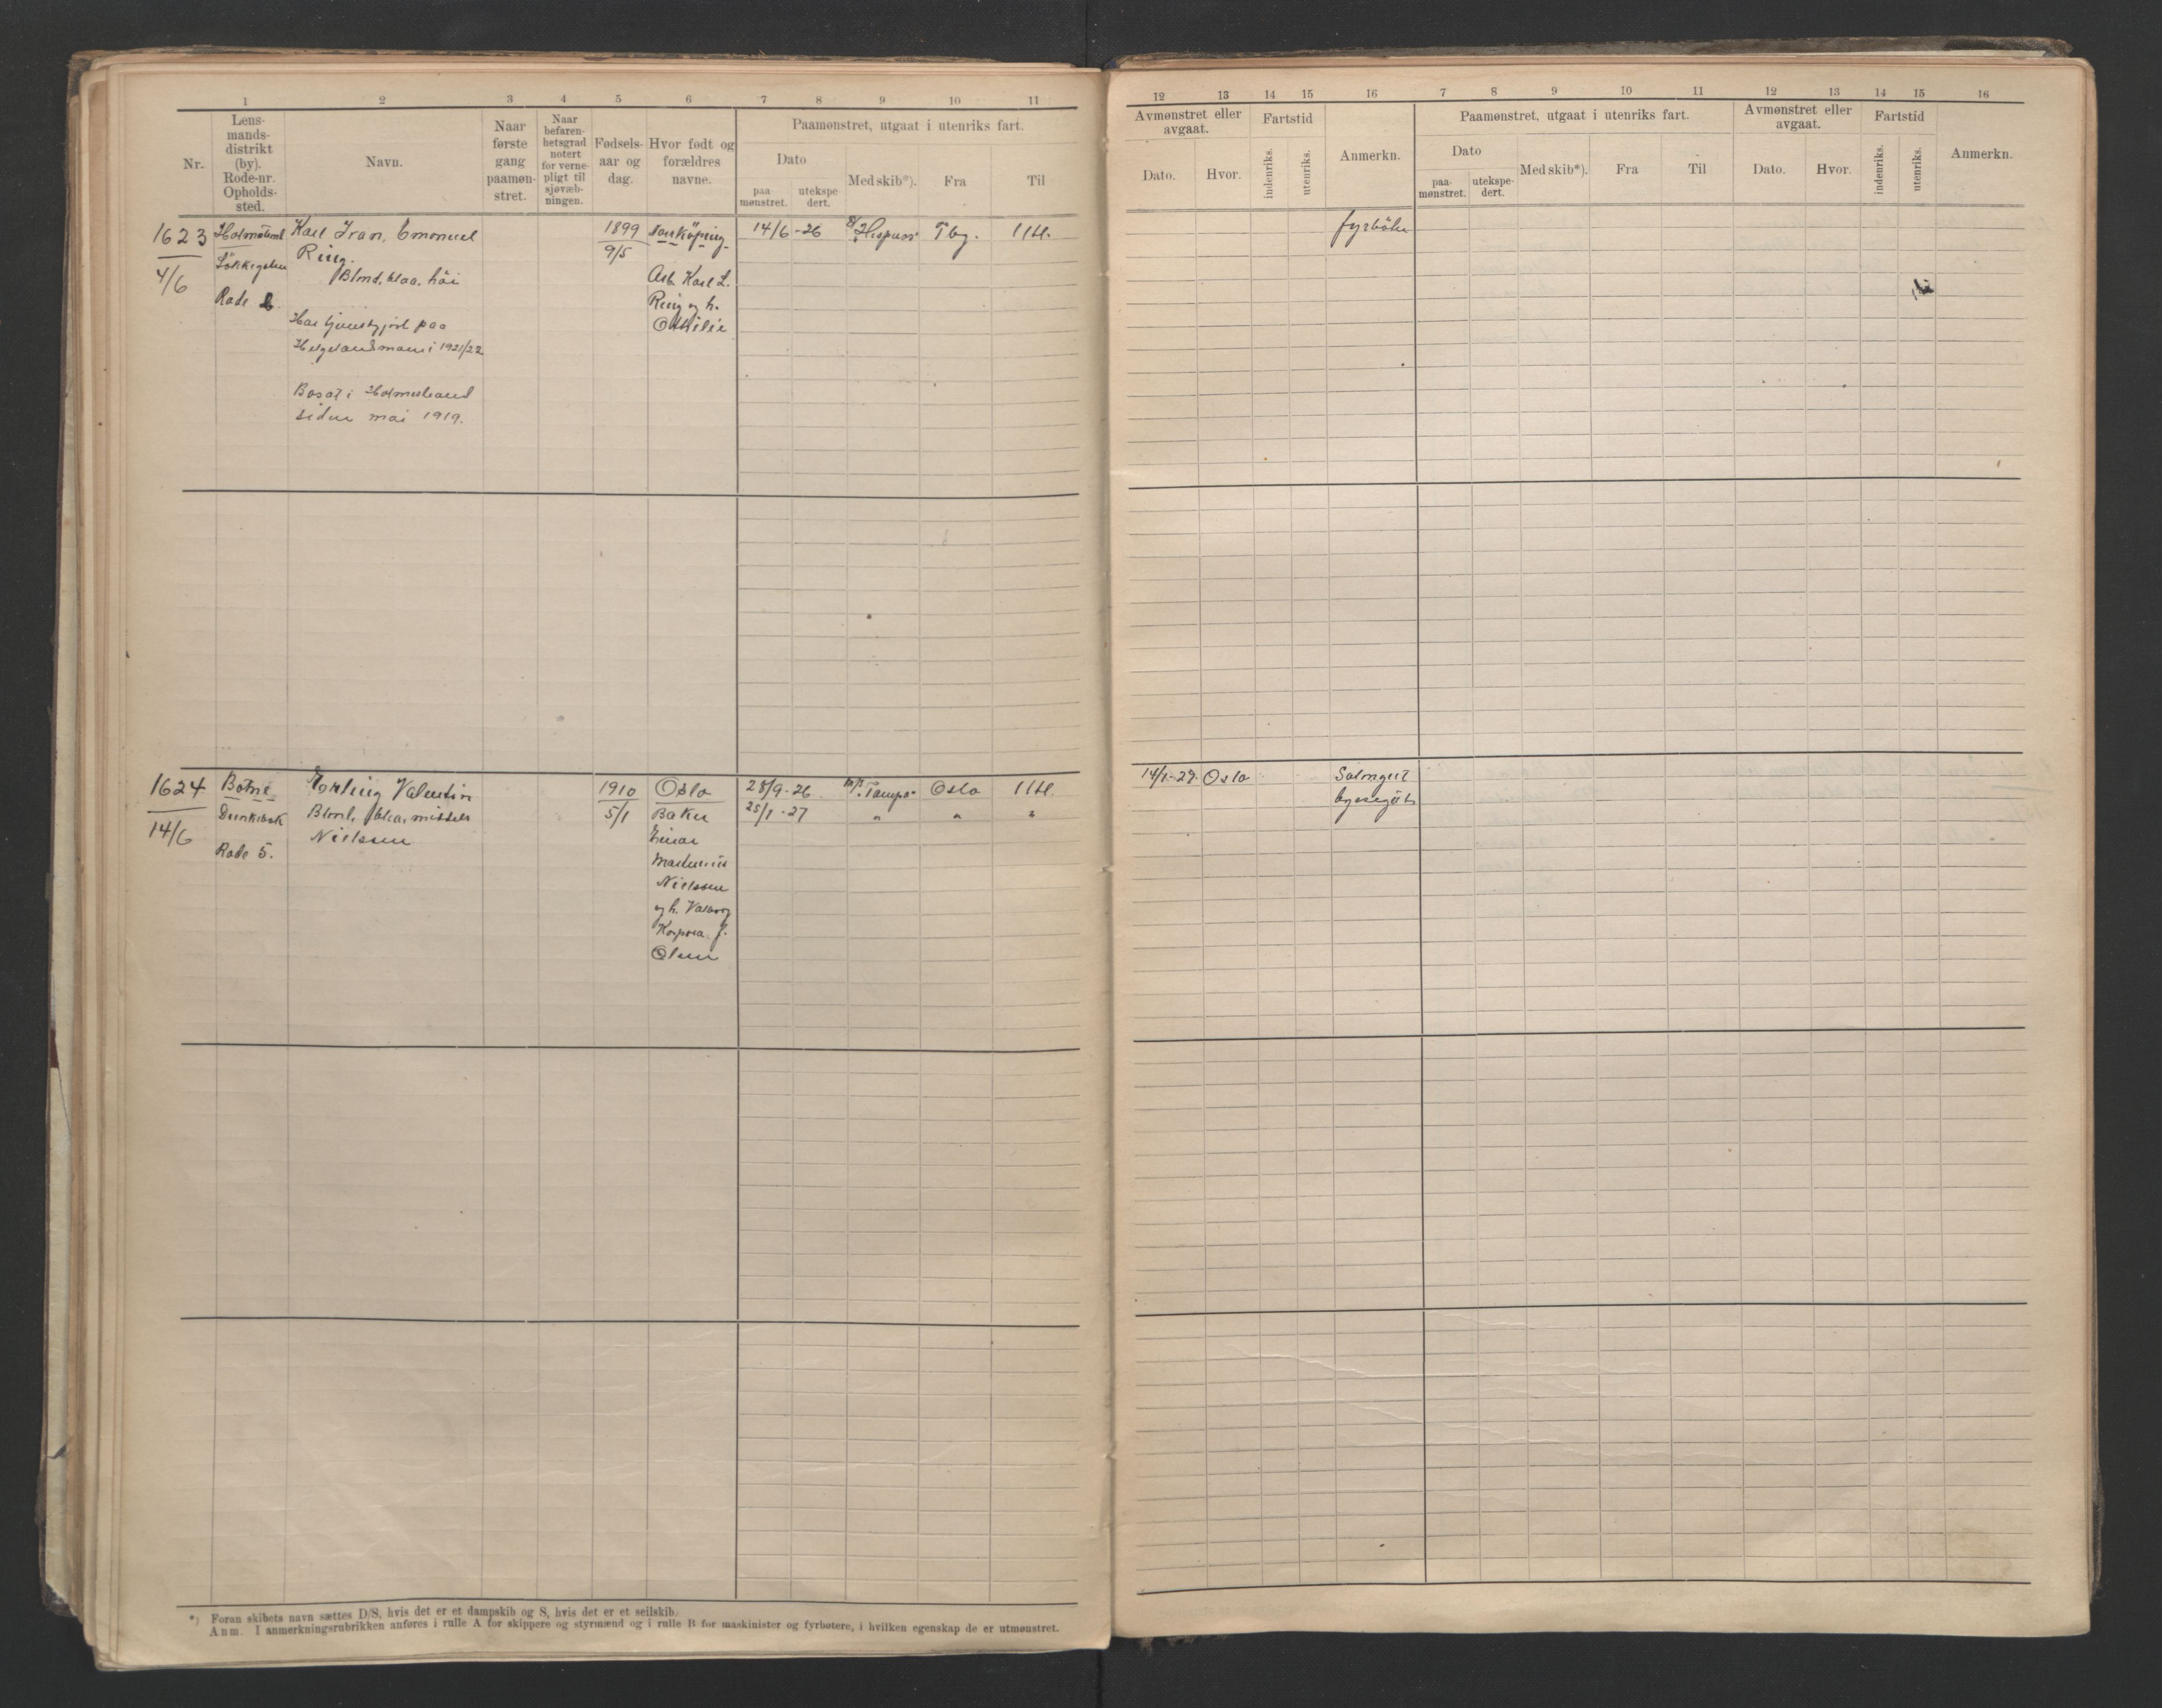 1 2 3 4 5 6 7 8 9 10 11
Nr.
Lens-
mands-
distrikt
(by).
Rode-nr.
Opholds-
sted.
Navn.
Naar
første
gang
paamøn-
stret.
Naar
befaren-
hetsgrad
notert
for verne-
pligt til
sjøvæb-
ningen.
Fødsels-
aar og
dag.
Hvor født og
forældres
navne.
Paamønstret, utgaat i utenriks fart.
Dato
paa
mønstret.
utekspe-
dert.
Med skib*).
Fra
Til
1623
4/6
Rode
Karl Ivan, Emanuel
Ring.
Blond, blaa, höi
Har tjenstgjort paa
i 1921/22
Bosat i Holmestrand
siden mai 1919.
1899
9/5
Norköping
Arb. Karl L.
Ring og h.
Ottilie
14/6-26
Tbg.
Utl.
1624
14/6
Botne
Rode 5.
Erling Valentin
Blond, blaa, middels
Nielsen
1910
5/1
Oslo
Baker
Einar
Nielsen
og h. Valborg
f.
Olsen
28/9-26 M/S Tampa Oslo Utl.
25/1-27 " " "
*) Foran skibets navn sættes D/S, hvis det er et dampskib og S, hvis det er et seilskib.
Anm. I anmerkningsrubrikken anføres i rulle A for skippere og styrmænd og i rulle B for maskinister og fyrbøtere, i hvilken egenskap de er utmønstret.
12 13 14 15 16 7 8 9 10 11 12 13 14 15 16
Avmønstret eller
avgaat.
Dato.
Hvor.
Fartstid
indenriks.
utenriks.
Anmerkn.
Paamønstret, utgaat i utenriks fart.
Dato
paa-
mønstret.
utekspe-
dert.
Med skib*).
Fra
Til
Avmønstret eller
avgaat.
Dato.
Hvor.
Fartstid
indenriks.
utenriks.
Anmerkn.
fyrböter
14/1-27. Oslo
Salongut
byssegut